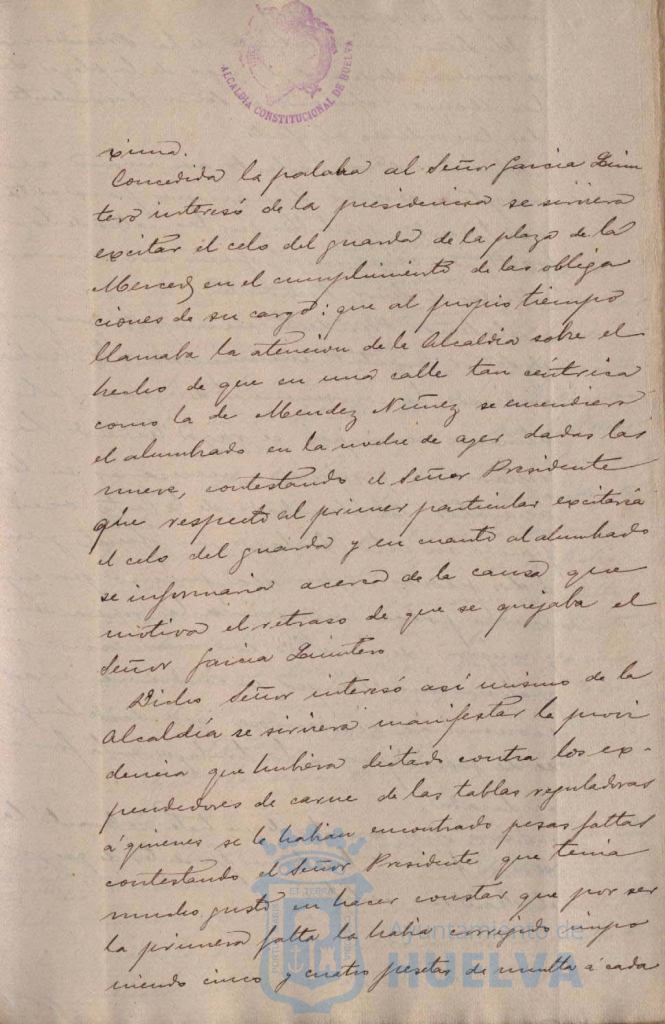 ALCALDIA CONSTITUCIONAL DE HUELVA
xima.
Concedida la palabra al Señor Garcia Quin
tero interesó de la presidencia se sirviera
excitar el celo del guarda de la plaza de la
Merced en el cumplimiento de las obliga
ciones de su cargo: que al propio tiempo
llamaba la atencion de la Alcaldia sobre el
hecho de que en una calle tan céntrica
como la de Mendez Nuñez se encendiera
el alumbrado en la noche de ayer dadas las
nueve, contestando el Señor Presidente
que respecto al primer particular excitaria
el celo del guarda y en cuanto al alumbrado
se informaria acerca de la causa que
motiva el retraso de que se quejaba el
Señor Garcia Quintero
Dicho Señor interesó así mismo de la
Alcaldía se sirviera manifestar la provi
dencia que hubiera dictado contra los ex-
pendedores de carne de las tablas reguladoras
á quienes se le habian encontrado pesas faltas
contestando el Señor Presidente que tenia
mucho gusto en hacer constar que por ser
la primera falta la habia correjido impo
niendo cinco y cuatro pesetas de multa á cada
Ayuntamiento de
HUELVA